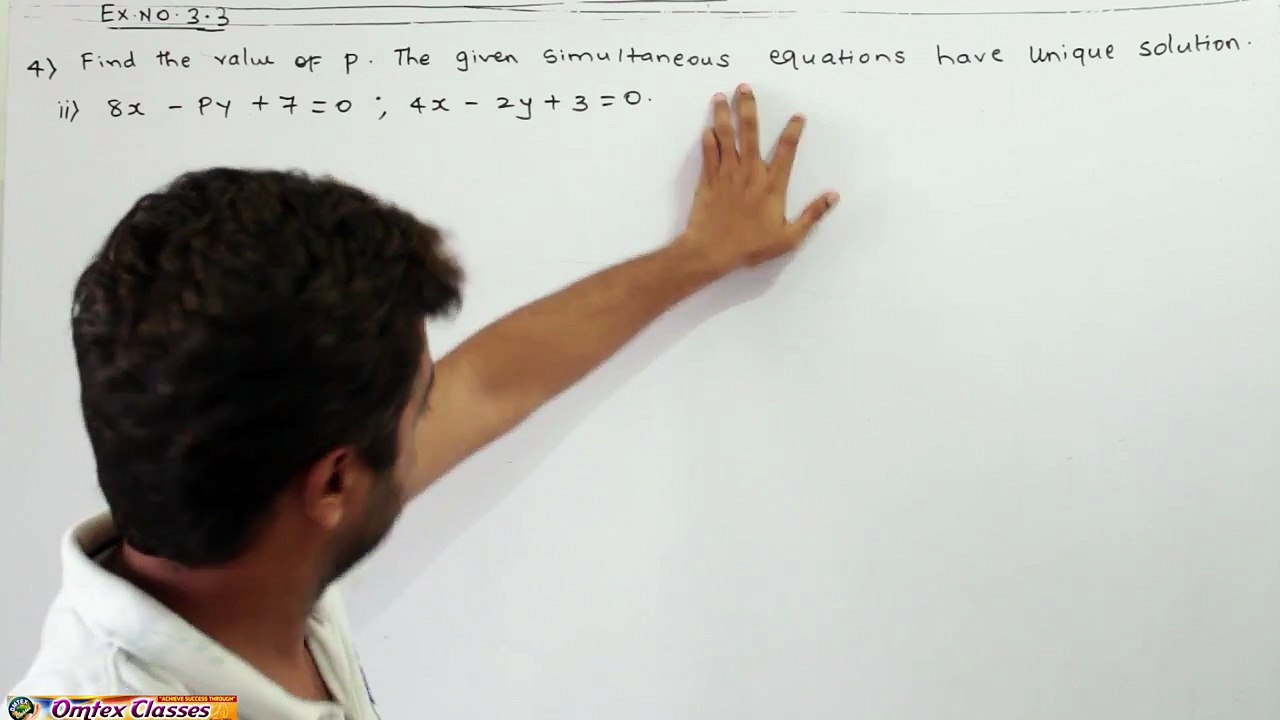 Ex. NO. 3.3
4) Find the value of p. The given simultaneous equations have unique solution.
ii) 8x - Py + 7 = 0 ; 4x - 2y + 3 = 0.
"ACHIEVE SUCCESS THROUGH"
OMTEX
Omtex Classes